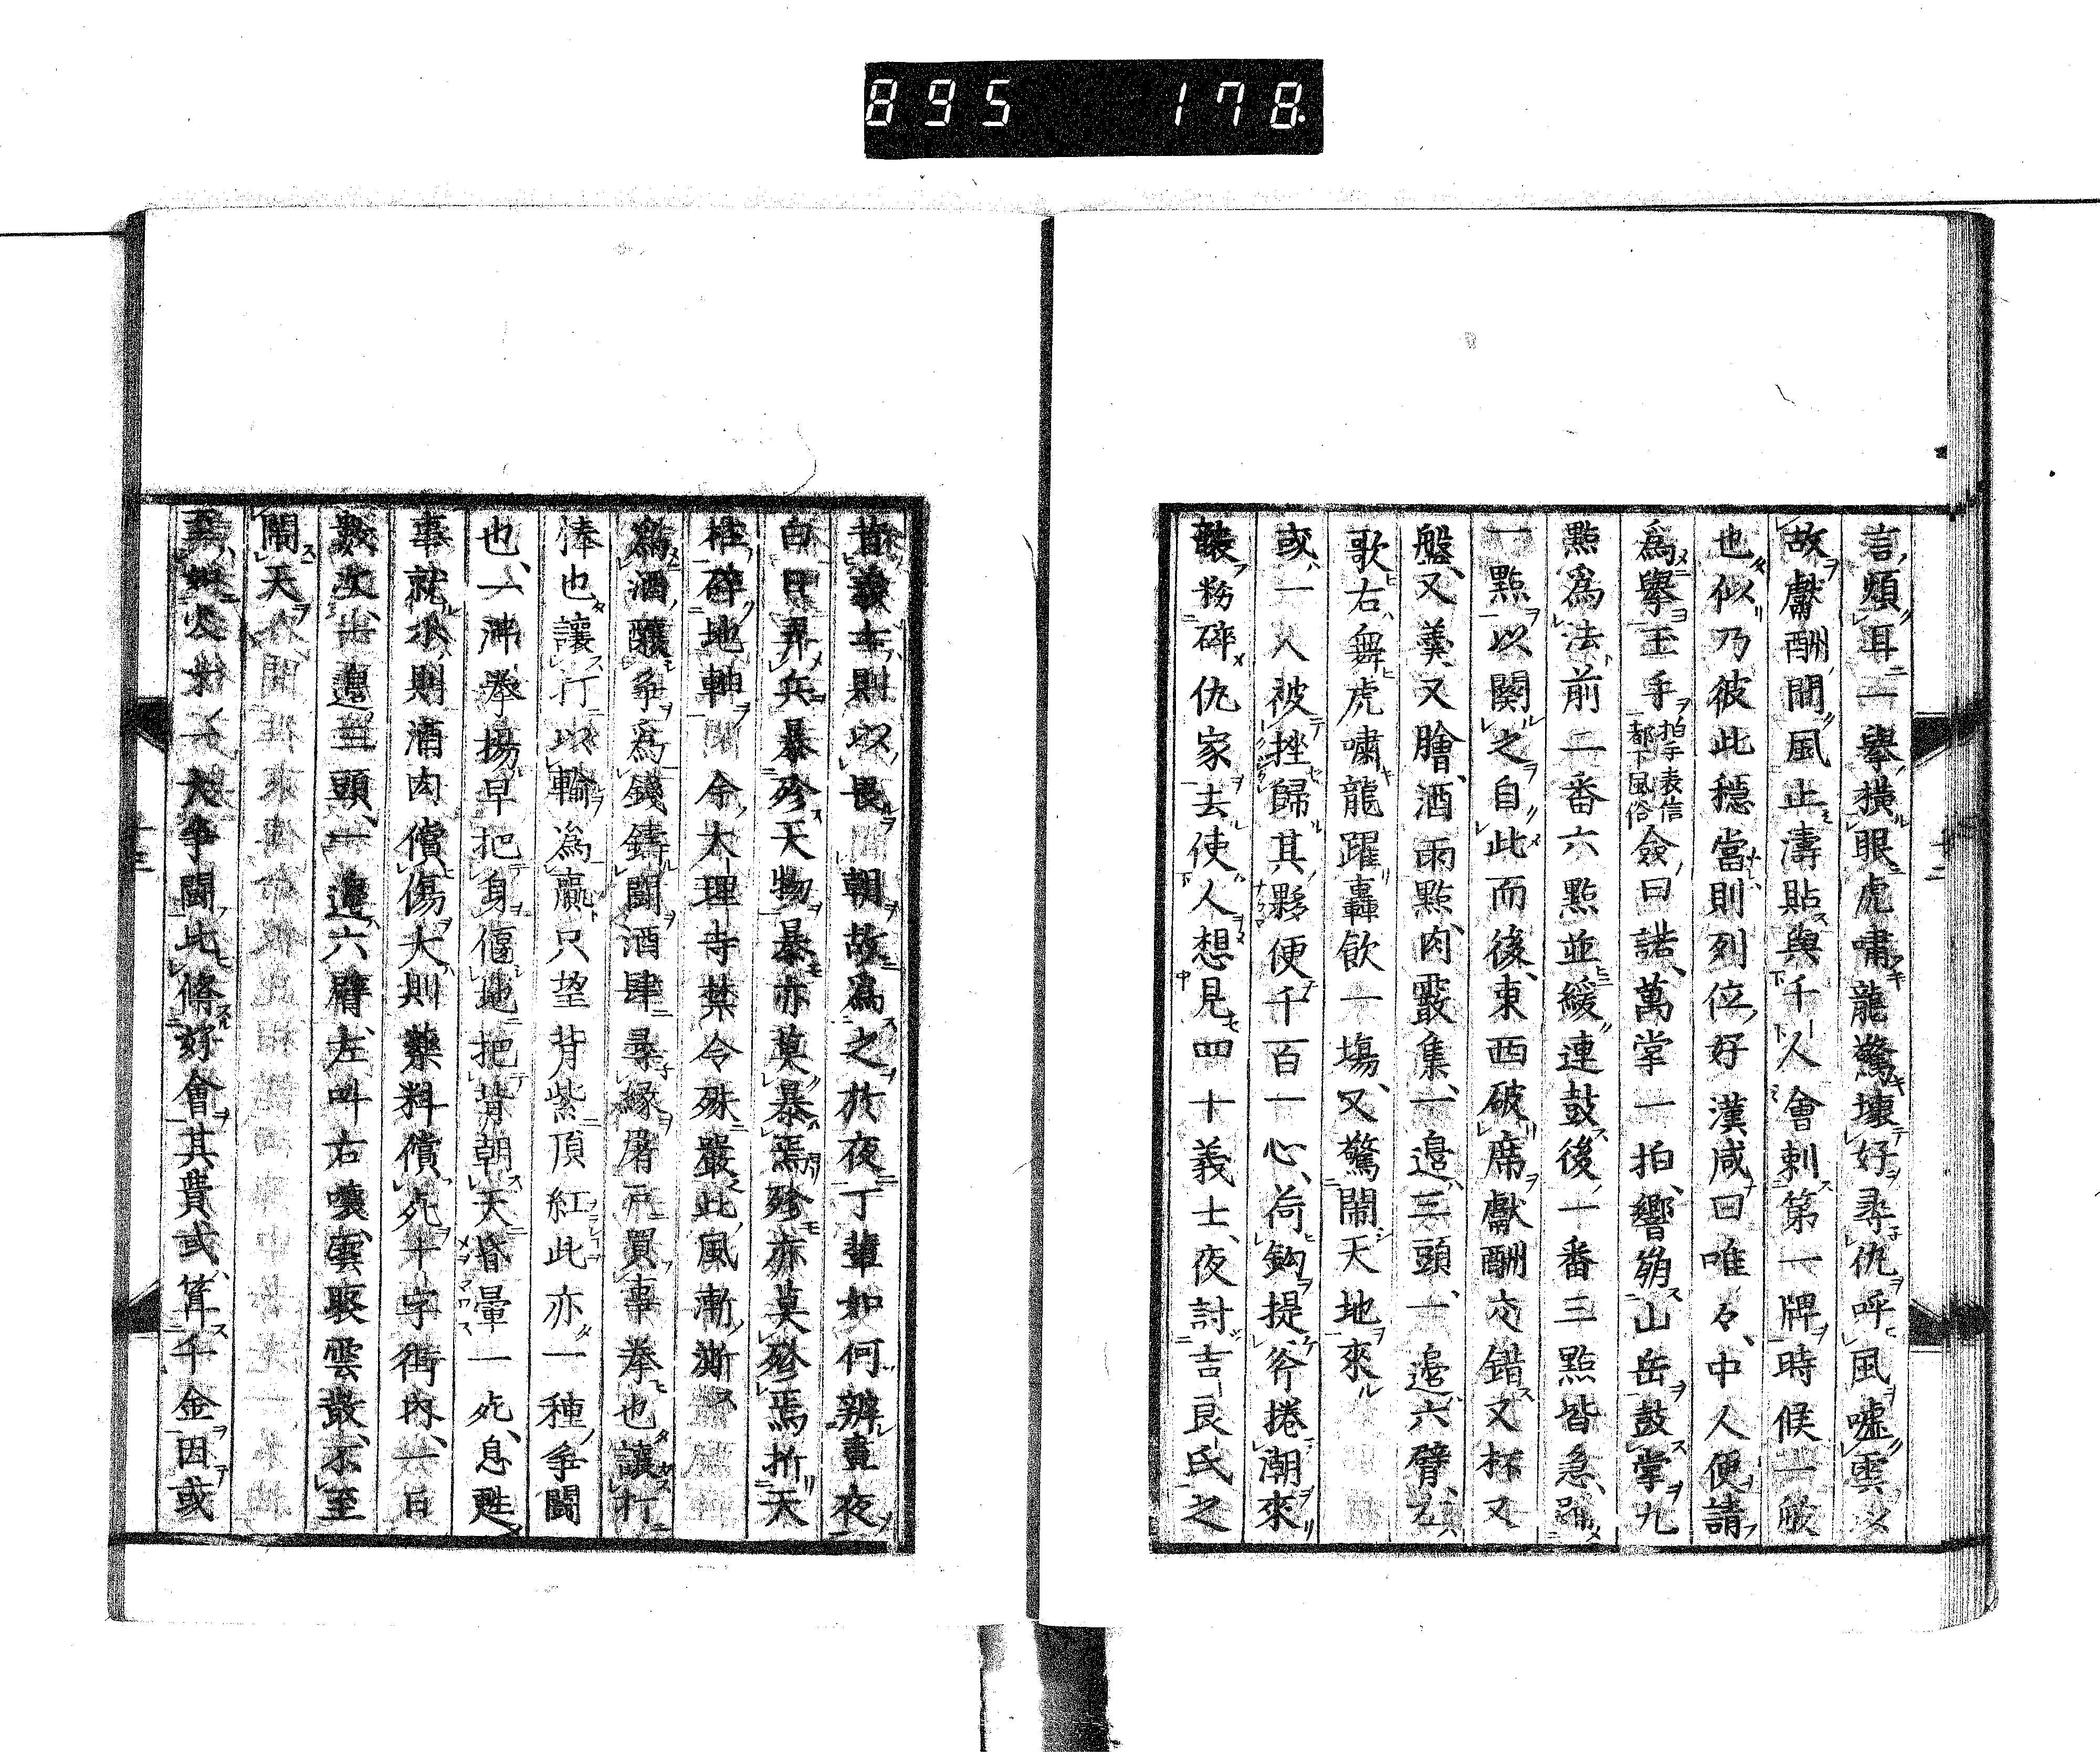 895 178
言頰耳一擧横眼虎嘯龍驚壞好尋仇呼風嘘雲以
故獻酬間風止濤貼與千人會刺第一牌時候一般
也似乃彼此穩當則列位好漢咸曰唯々中人便請
爲擧玉手拍手表信都下風俗僉曰諾萬掌一拍響崩山岳鼓掌九
點爲法前二番六點並緩連鼓後一番三點皆急
一點以関之自此而後東西破席獻酬交錯又杯又
盤又羹又膾酒雨點肉霰集一邉三頭一邉六臂左
歌右舞虎嘯龍躍轟飲一塲又驚鬧天地來
或一人被挫歸其夥便千百一心荷鈎提斧捲潮來
務碎仇家去使人想見四十義士夜討吉良氏之
昔義士則以畏朝故爲之於夜丁輩如何辨晝夜
白日弄兵暴殄天物暴亦莫暴焉殄亦莫殄焉折天
柱碎地軸余大理寺禁令殊嚴此風漸漸
爲酒釀爭爲錢鑄鬪酒肆尋縁屠買事拳也讓打
捧也讓打以輸爲贏只望背紫頂紅此亦一種爭鬪
也一沖拳揚早把身偃地把背朝天昏暈一死息甦
事就小則酒肉償傷大則藥料償死十字街内一日
數次一邉三頭一邉六臂左叫右嚷雲聚雲散不至
鬧天
大爭鬪此條好會其費或算千金因或